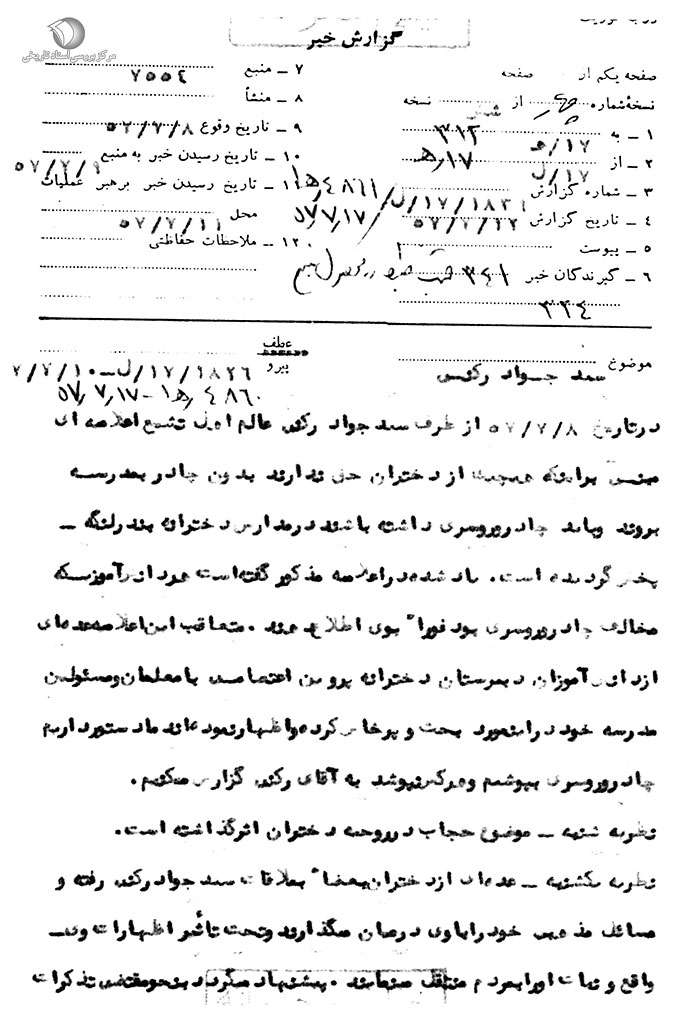 مرکز بررسی اسناد تاریخی
گزارش خبر
صفحه یکم از صفحه
نسخه شماره چهار از شش نسخه
۱ ــ به ۳۱۲
۲ ــ از ۱۷/ل ۱۷/ﻫ
۳ ــ شماره گزارش
۴ ــ تاریخ گزارش
۵ ــ پیوست
۶ ــ گیرندگان خبر ۳۴۱
۳۳۴
۷ ــ منبع ۷۵۵۴
۸ ــ منشأ
۹ ــ تاریخ وقوع ۵۷/۷/۸
۱۰ ــ تاریخ رسیدن خبر به منبع ۵۷/۷/۹
۱۱ ــ تاریخ رسیدن خبر برهبر عملیات
محل ۵۷/۷/۱۱
۱۲ ــ ملاحظات حفاظتی
موضوع سید جواد رکنی
عطف
پیرو
در تاریخ ۵۷/۷/۸ از طرف سید جواد رکنی عالم اهل تشیع اعلامیه ای
مبنی براینکه هیچیک از دختران حق ندارند بدون چادر بمدرسه
بروند و باید چادر و روسری داشته باشند در مدارس دخترانه بندرلنگه ــ
پخش گردیده است. یاد شده در اعلامیه مذکور گفته است هر دانش آموزی که
مخالف چادر و روسری بود فوراً بوی اطلاع دهند. متعاقب این اعلامیه عده ای
از دانش آموزان دبیرستان دخترانه پروین اعتصامی با معلمان و مسئولین
مدرسه خود در اینمورد بحث و پرخاش کرده و اظهار نموده اند ما دستور داریم
چادر و روسری بپوشیم و هرکس نپوشد به آقای رکنی گزارش میکنیم.
نظریه شنبه ــ موضوع حجاب در روحیه دختران اثر گذاشته است.
نظریه یکشنبه ــ عده ای از دختران بعضاً بملاقات سید جواد رکنی رفته و
مسائل مذهبی خود را با وی در میان میگذارند و تحت تأثیر اظهارات وی ــ
واقع و نیات او را بمردم منتقل مینمایند. پیشنهاد میگردد بنحو مقتضی تذکرات